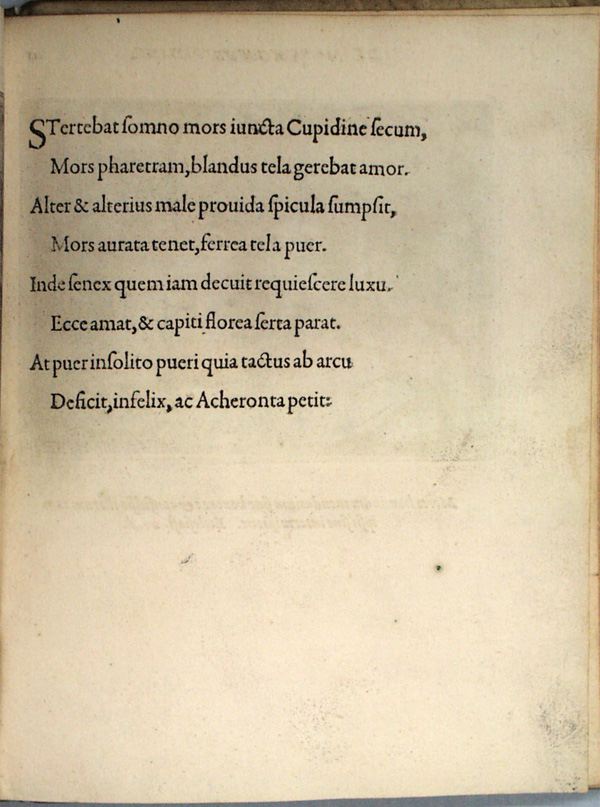 STertebat ſomno mors iuncta Cupidine ſecum,
Mors pharetram, blandus tela gerebat amor.
Alter & alterius male prouida ſpicula ſumpſit,
Mors aurata tenet, ferrea tela puer.
Inde ſenex quem iam decuit requieſcere luxu.
Ecce amat, & capiti florea ſerta parat.
At puer inſolito pueri quia tactus ab arcu
Deficit, infelix, ac Acheronta petit: